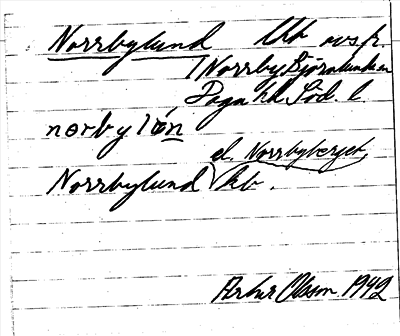 Norrbylund Ub avs fr.
1 Norrby Björnlunda sn
Daga hd. Söd. l.
norbylón
el. Norrbyberget,
Norrbylund kb.
Arthur Olsson 1942